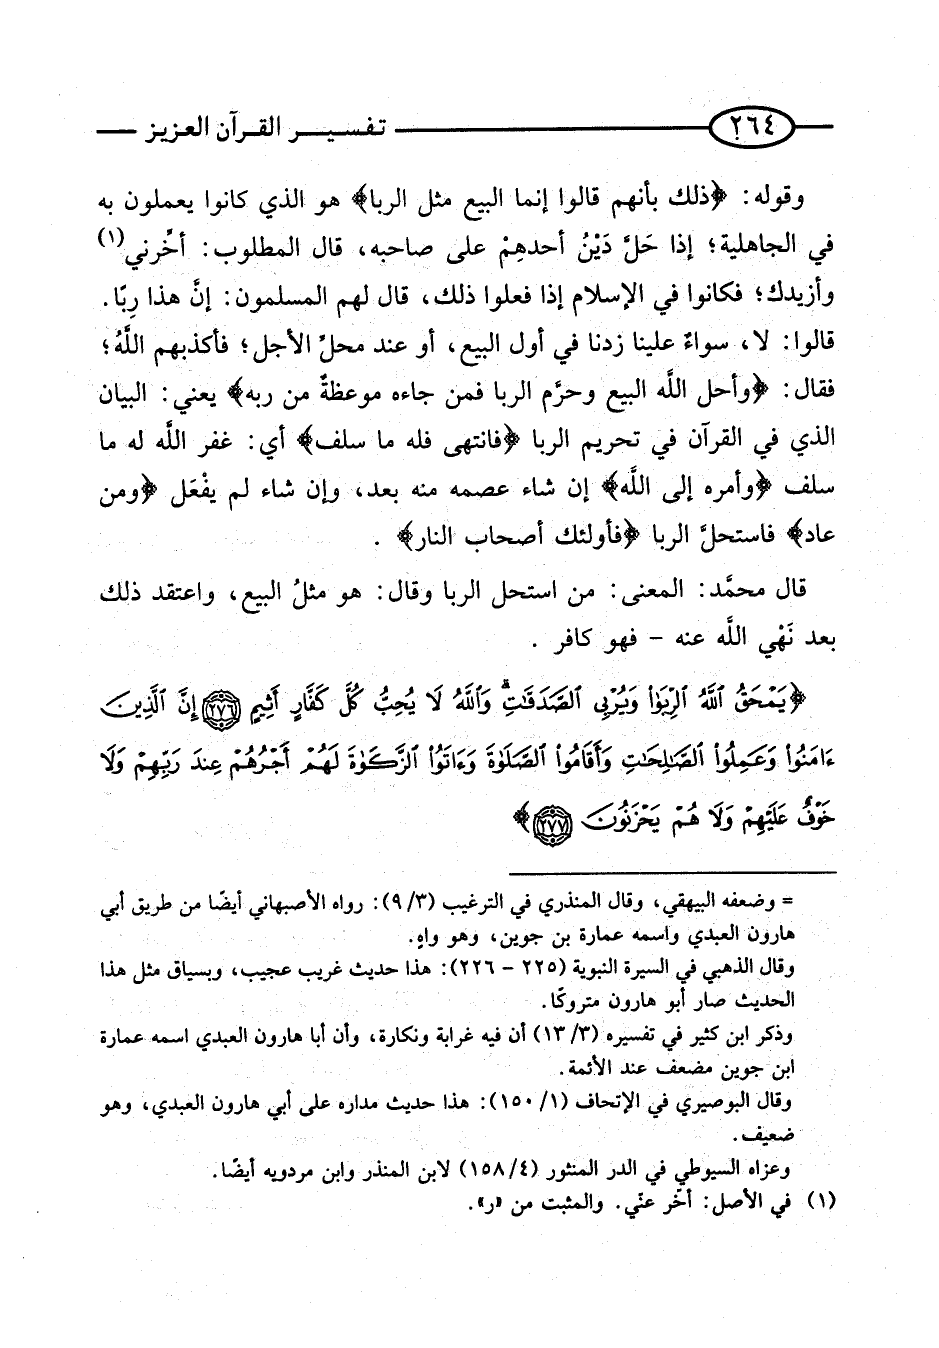 ٢٦٤ تفسير القرآن العزيز
وقوله: ﴿ذلك بأنهم قالوا إنما البيع مثل الربا﴾ هو الذي كانوا يعملون به
في الجاهلية؛ إذا حَلَّ دَيْنُ أحدهِمْ على صاحبه، قال المطلوب: أخِّرني(١)
وأزيدك؛ فكانوا في الإسلام إذا فعلوا ذلك، قال لهم المسلمون: إنَّ هذا رِبًا.
قالوا: لا، سواءٌ علينا زدنا في أول البيع، أو عند محلِّ الأجل؛ فأكذبهم اللَّهُ؛
فقال: ﴿وأحل اللَّه البيع وحرَّم الربا فمن جاءه موعظةٌ من ربه﴾ يعني: البيان
الذي في القرآن في تحريم الربا ﴿فانتهى فله ما سلف﴾ أي: غفر اللَّه له ما
سلف ﴿وأمره إلى اللَّه﴾ إن شاء عصمه منه بعد، وإن شاء لم يفْعَل ﴿ومن
عاد﴾ فاستحلَّ الربا ﴿فأولئك أصحاب النار﴾ .
قال محمَّد: المعنى: من استحل الربا وقال: هو مثلُ البيع، واعتقد ذلك
بعد نَهْي اللَّه عنه – فهو كافر .
﴿يَمْحَقُ ٱللَّهُ ٱلرِّبَوٰا۟ وَيُرْبِى ٱلصَّدَقَٰتِ ۗ وَٱللَّهُ لَا يُحِبُّ كُلَّ كَفَّارٍ أَثِيمٍ ٢٧٦ إِنَّ ٱلَّذِينَ
ءَامَنُوا۟ وَعَمِلُوا۟ ٱلصَّٰلِحَٰتِ وَأَقَامُوا۟ ٱلصَّلَوٰةَ وَءَاتَوُا۟ ٱلزَّكَوٰةَ لَهُمْ أَجْرُهُمْ عِندَ رَبِّهِمْ وَلَا
خَوْفٌ عَلَيْهِمْ وَلَا هُمْ يَحْزَنُونَ ٢٧٧﴾
= وضعفه البيهقي، وقال المنذري في الترغيب (٩/٣): رواه الأصبهاني أيضًا من طريق أبي
هارون العبدي واسمه عمارة بن جوين، وهو واهٍ.
وقال الذهبي في السيرة النبوية (٢٢٥ – ٢٢٦): هذا حديث غريب عجيب، وبسياق مثل هذا
الحديث صار أبو هارون متروكًا.
وذكر ابن كثير في تفسيره (١٣/٣) أن فيه غرابة ونكارة، وأن أبا هارون العبدي اسمه عمارة
ابن جوين مضعف عند الأئمة.
وقال البوصيري في الإتحاف (١٥٠/١): هذا حديث مداره على أبي هارون العبدي، وهو
ضعيف.
وعزاه السيوطي في الدر المنثور (١٥٨/٤) لابن المنذر وابن مردويه أيضًا.
(١) في الأصل: أخِّر عنّي. والمثبت من «ر».